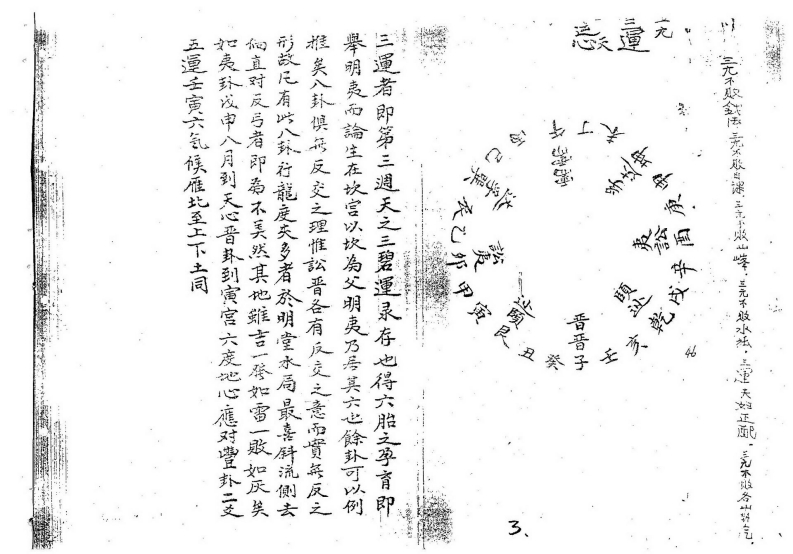 三元不敗錢法．三元不敗白課．三元不敗山峰．三元不敗水法．三運天始正配．三元不敗各山對气．
三元
三運
天
午
丁
未
申
庚
酉
辛
戌
乾
亥
壬
子
癸
丑
艮
寅
甲
卯
乙
巳
訟
夷
頤
晋晋
頤
訟
夷
46
三運者即第三週天之三碧運录存也得六胎之孕育即
舉明夷而論生在坎宫以坎為父明夷乃居其六也餘卦可以例
推矣八卦惧無反交之理惟訟晋各有反交之意而實無反之
形故凡有此八卦行龍度夹多者於明堂水局最喜斜流側去
倘直对反弓者即為不美然其地雖吉一發如雷一敗如灰矣
如夷卦戊申八月到天心晋卦到寅宫六度地心應对豐卦二爻
五運壬寅六气候雁北至上下土同
3.